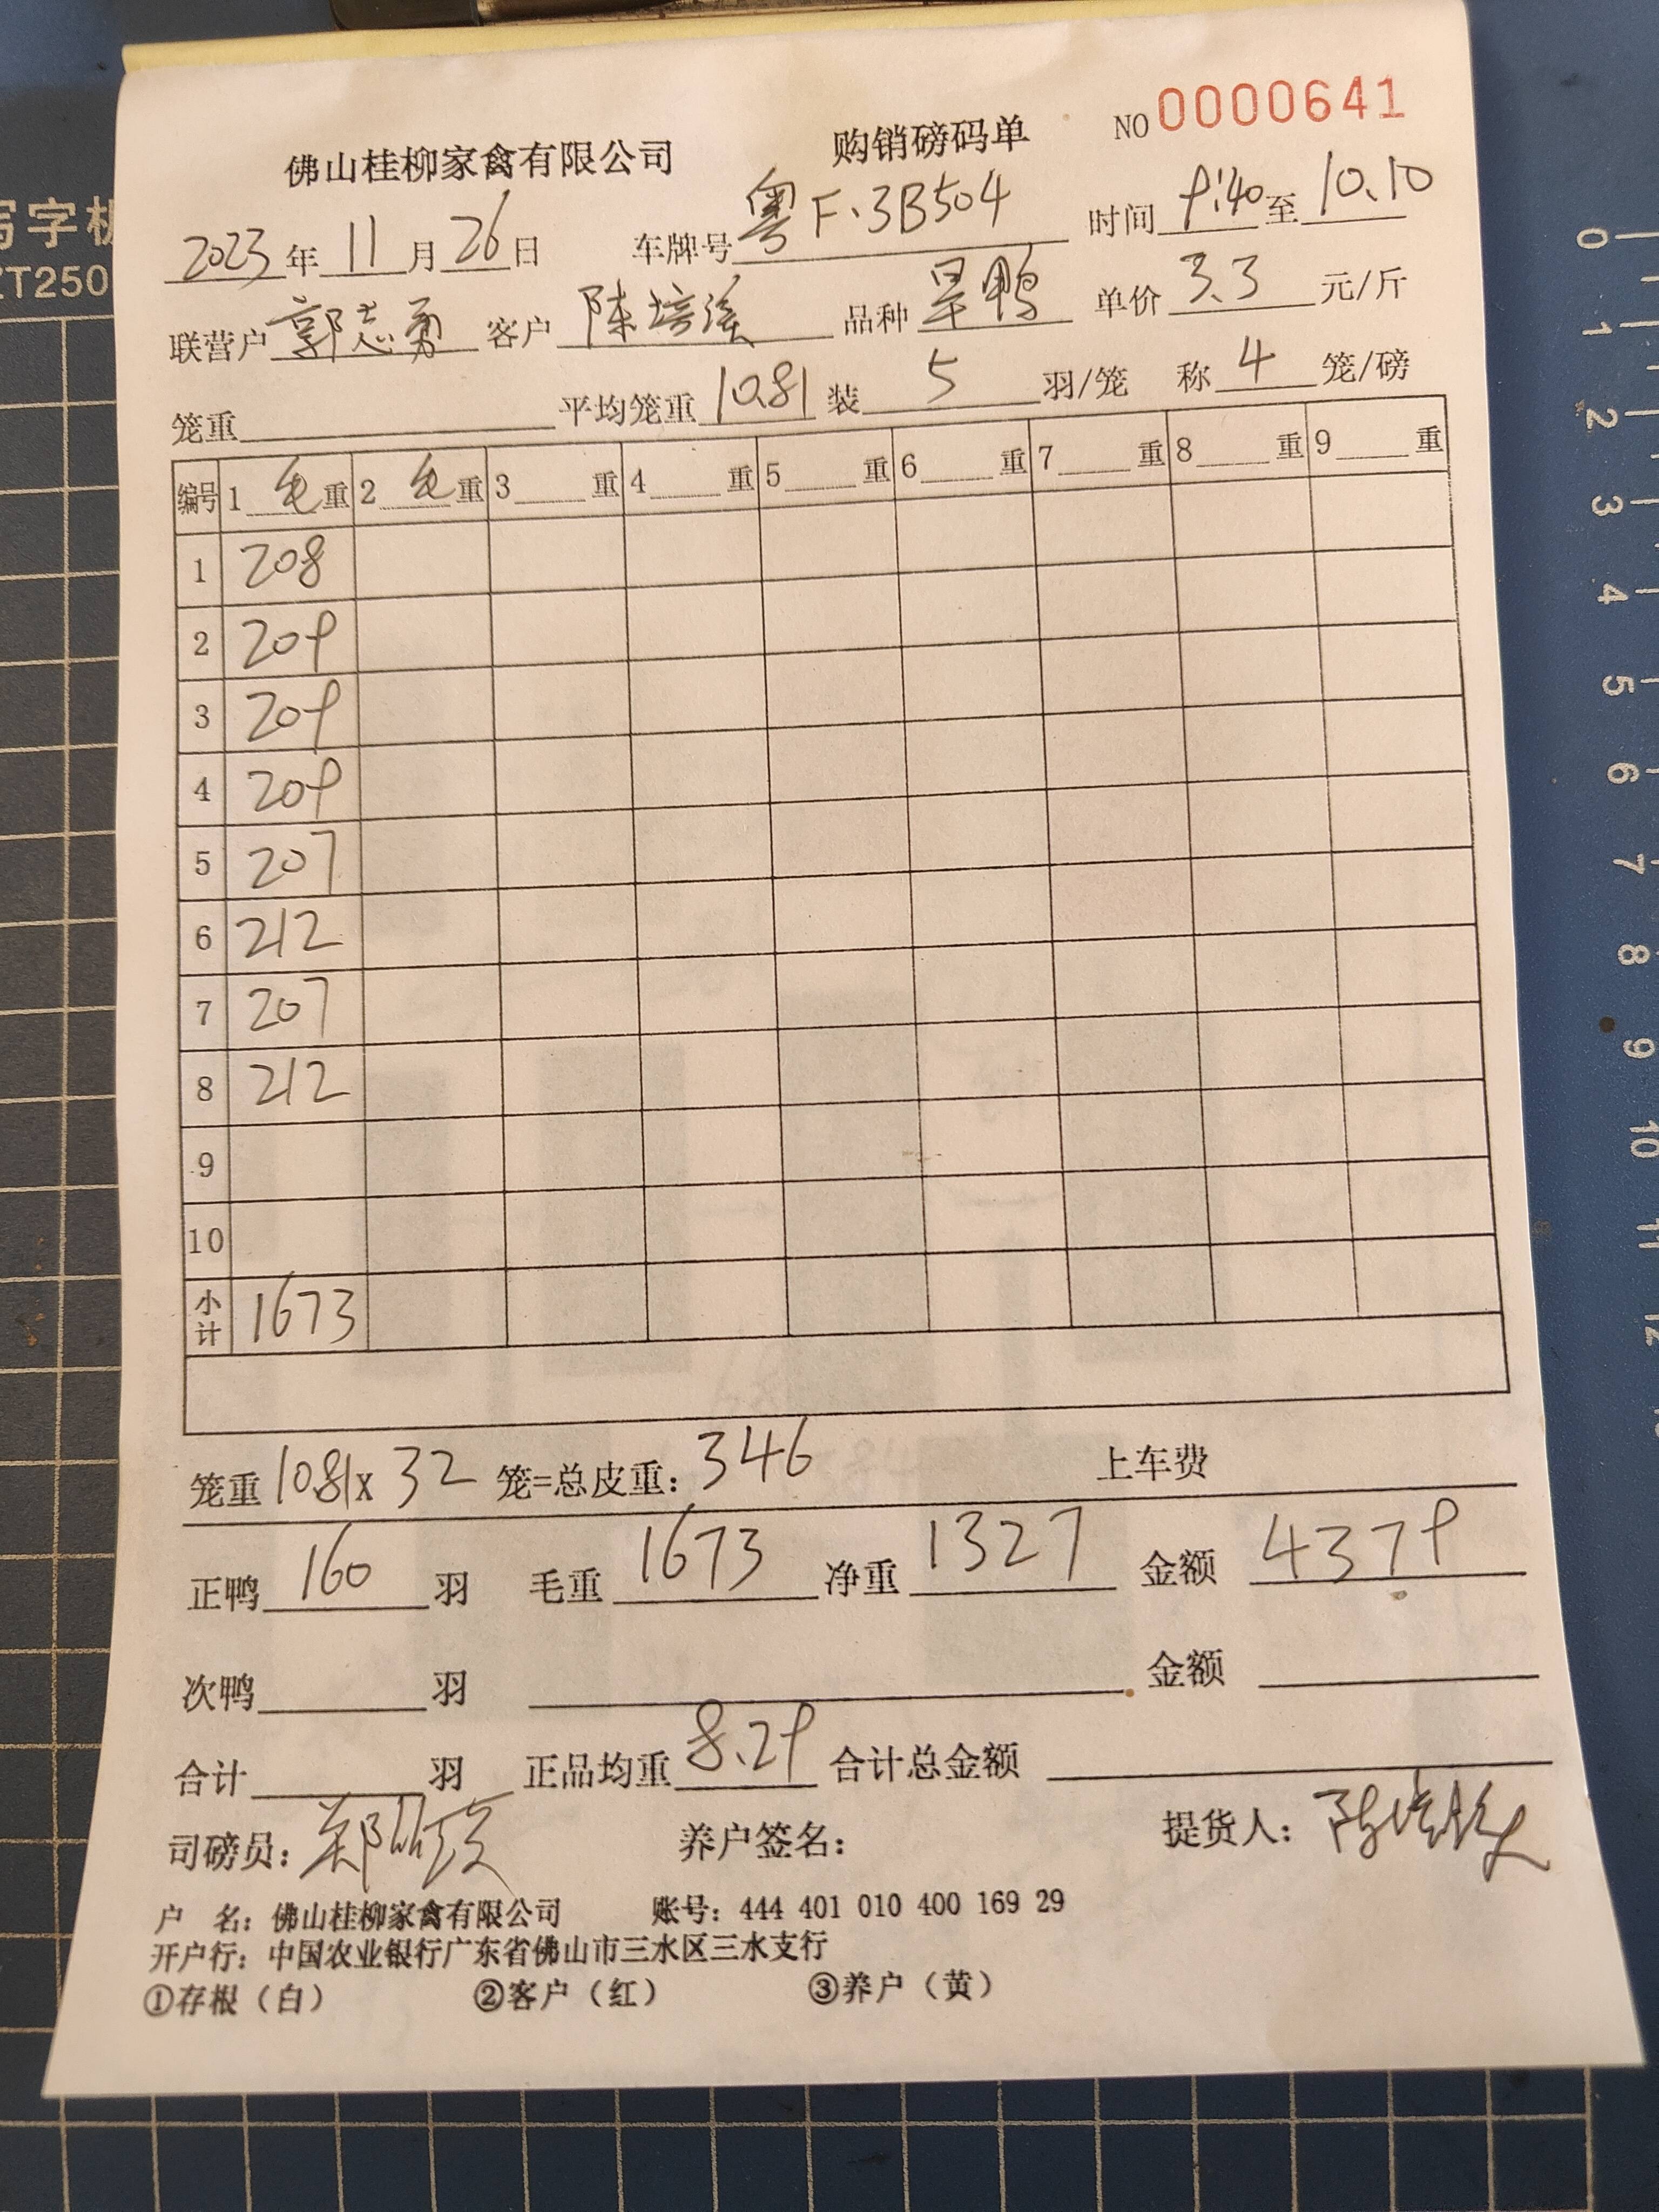 佛山桂柳家禽有限公司 购销磅码单 NO 0000641
2023年 11月 26日 车牌号 粤F·3B504 时间 9:40 至 10.10
联营户 郭志勇 客户 陈培 品种 旱鸭 单价 3.3 元/斤
笼重 平均笼重 10.81 装 5 羽/笼 称 4 笼/磅
编号 1 毛重 2 毛重 3 重 4 重 5 重 6 重 7 重 8 重 9 重
1 208
2 209
3 209
4 209
5 207
6 212
7 207
8 212
9
10
小计 1673
笼重 10.81x 32 笼=总皮重: 346 上车费
正鸭 160 羽 毛重 1673 净重 1327 金额 4379
次鸭 羽 金额
合计 羽 正品均重 8.29 合计总金额
司磅员: 郑 养户签名: 提货人: 陈
户 名: 佛山桂柳家禽有限公司 账号: 444 401 010 400 169 29
开户行: 中国农业银行广东省佛山市三水区三水支行
①存根(白) ②客户(红) ③养户(黄)
写字
ZT250
0
1
2
3
4
5
6
7
8
9
10
11
12